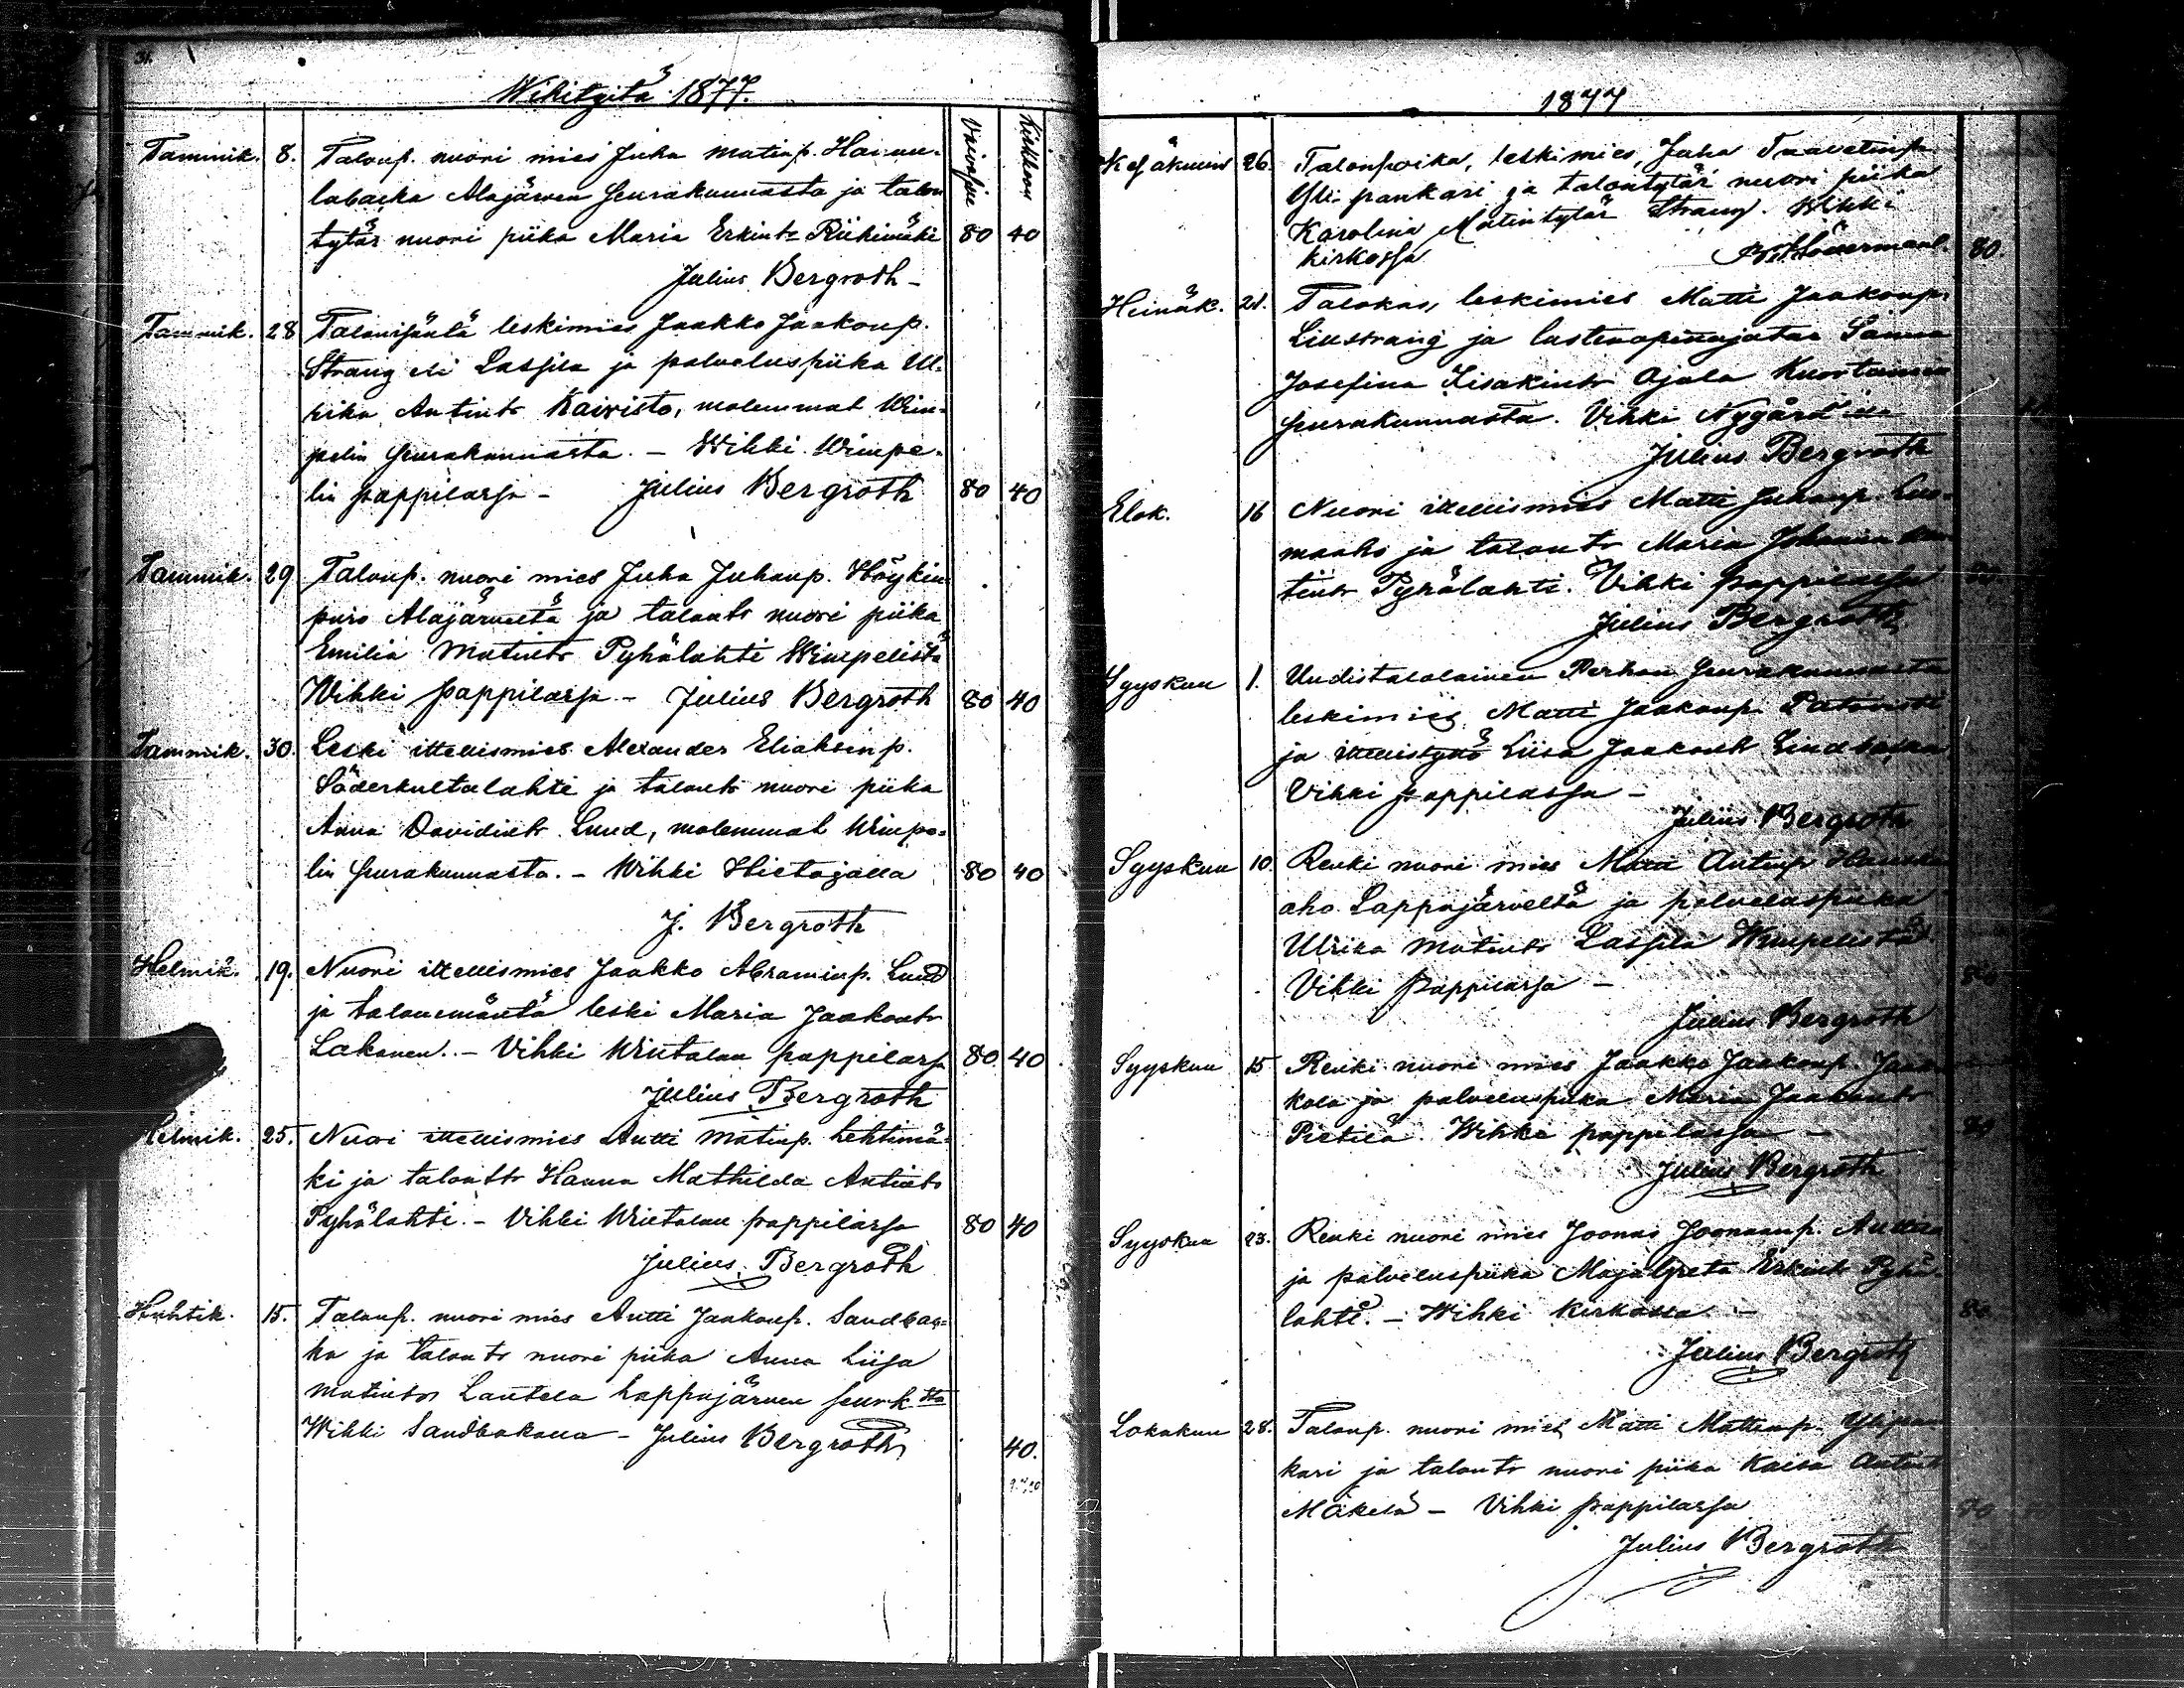 Wihityitä 1877.
Vaivasten Kirkkoon
Tammik. 8. Talonp. nuori mies Juha Matinp. Hannu-
labacka Alajärven seurakunnasta ja talon
tytär nuori piika Maria Erkintr Riihimäki 80 40
Julius Bergroth -
Tammik. 28 Talonisäntä leskimies Jaakko Jaakonp.
Strang eli Lassila ja palveluspiika Ul-
rika Antintr Kaivisto, molemmat Wim-
pelin seurakunnasta. - Wihki Wimpe-
lin pappilassa - Julius Bergroth 80 40
Tammik. 29 Talonp. nuori mies Juha Juhanp. Höykin
puro Alajärveltä ja talontr nuori piika
Emilia Matintr Pyhälahti Wimpelistä
Wihki pappilassa - Julius Bergroth 80 40
Tammik. 30. Leski ittellismies Alexander Eliaksenp.
Söderkultalahti ja talontr nuori piika
Anna Davidintr Lund, molemmat Wimpe-
lin seurakunnasta. - Wihki Hietojalla 80 40
J. Bergroth
Helmik. 19. Nuori ittellismies Jaakko Abraminp. Lund
ja talonemäntä leski Maria Jaakontr
Lakanen. - Vihki Wirtalan pappilassa 80 40
Julius Bergroth
Helmik. 25. Nuori ittellismies Antti Matinp. Lehtimä-
ki ja talontr Hanna Mathilda Antintr
Pyhälahti. - Vihki Wirtalan pappilassa 80 40
Julius Bergroth
Huhtik. 15. Talonp. nuori mies Antti Jaakonp. Sandbac-
ka ja talontr nuori piika Anna Liisa
Matintr Lantela Lappajärven seurk.sta
Wihki Sandbakalla - Julius Bergroth 40.
1877
Kesäkuun 26. Talonpoika, leskimies, Juha Taavetinp.
Yli-pankari ja talontytär nuori piika
Karolina Matintytär Strang. Wihki
kirkossa 80.
Heinäk. 21. Talokas, leskimies Matti Jaakonp.
Lillstrang ja lastenopettajatar Sanna
Josefina Iisakintr Ojala Kuortaneen
seurakunnasta. Vihki Nygård
Julius Bergroth
Elok. 16 Nuori ittellismies Matti Juhanp. Luo-
maaho ja talontr Maria Johanna
tintr Pyhälahti. Vihki pappilassa 80
Julius Bergroth
Syyskuu 1. Uudistalolainen Perhon seurakunnasta
leskimies Matti Jaakonp.
ja ittellistyttö Liisa Jaakontr Lindbacka
Vihki pappilassa -
Julius Bergroth
Syyskuu 10. Renki nuori mies Matti Antinp
aho Lappajärveltä ja palveluspiika
Ulrika Matintr Lassila Wimpelistä
Vihki pappilassa - 80
Julius Bergroth
Syyskuu 15 Renki nuori mies Jaakko Jaakonp. Jaak
kola ja palveluspiika Maria Jaakontr
Pietilä. Wihki pappilassa - 80
Julius Bergroth
Syyskuu 23. Renki nuori mies Joonas Joonaanp.
ja palveluspiika Maja Greta Erkintr Pyhä-
lahti. - Wihki kirkossa - 80
Julius Bergroth
Lokakuu 28. Talonp. nuori mies Matti Mattinp. Ylipan
kari ja talontr nuori piika Kaisa Antintr
Mäkelä - Vihki pappilassa 80
Julius Bergroth